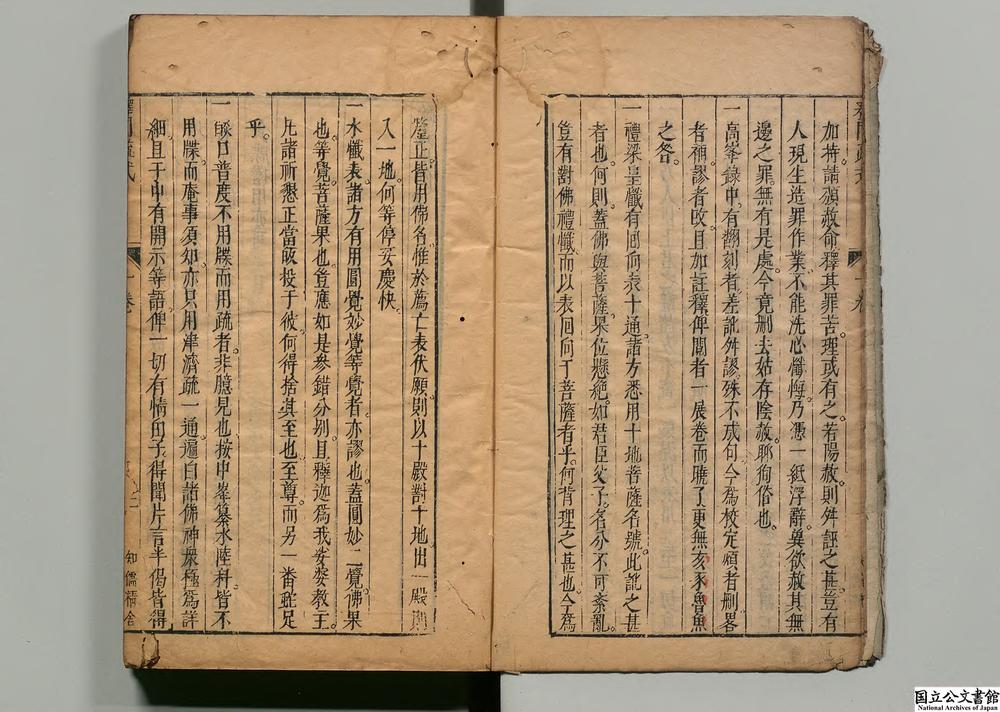 加持請頒赦命釋其罪苦。理或有之。若陽赦。則舛誣之甚。豈有
人現生造罪作業。不能洗心懺悔。乃憑一紙浮辭。冀欲赦其無
邊之罪。無有是處。今竟刪去。姑存陰赦。聊狥俗也。
一高峯錄中。有翻刻者。差訛舛謬殊不成句。今為校定。煩者刪。畧
者補。謬者改。且加註釋。俾閱者一展卷而曉了。更無亥豕魯魚
之咎。
一禮梁皇懺有回向表十通。諸方悉用十地菩薩名號。此訛之甚
者也。何則。蓋佛與菩薩。果位懸絶。如君臣父子。名分不可紊亂。
豈有對佛禮懺。而以表回向于菩薩者乎。何背理之甚也。今為
釐正。皆用佛名。惟於薦亡表伏願。則以十殿對十地出一殿
入一地。何等停妥慶快。
一水懺表。諸方有用圓覺妙覺等覺者。亦謬也。蓋圓妙二覺。佛果
也。等覺。菩薩果也。豈應如是參錯分別。且釋迦為我娑婆教主。
凡諸所懇。正當皈投于彼。何得捨其至也至尊。而另一番蛇足
乎。
一燄口普度不用牒而用疏者。非臆見也。按中峯纂水陸科。皆不
用牒。而庵事須知。亦只用津濟疏一通。遍白諸佛神衆。極為詳
細。且于中有開示等語。俾一切有情因字得聞片言半偈。皆得
釋門疏式
一卷
知儒精舍
国立公文書館
National Archives of Japan